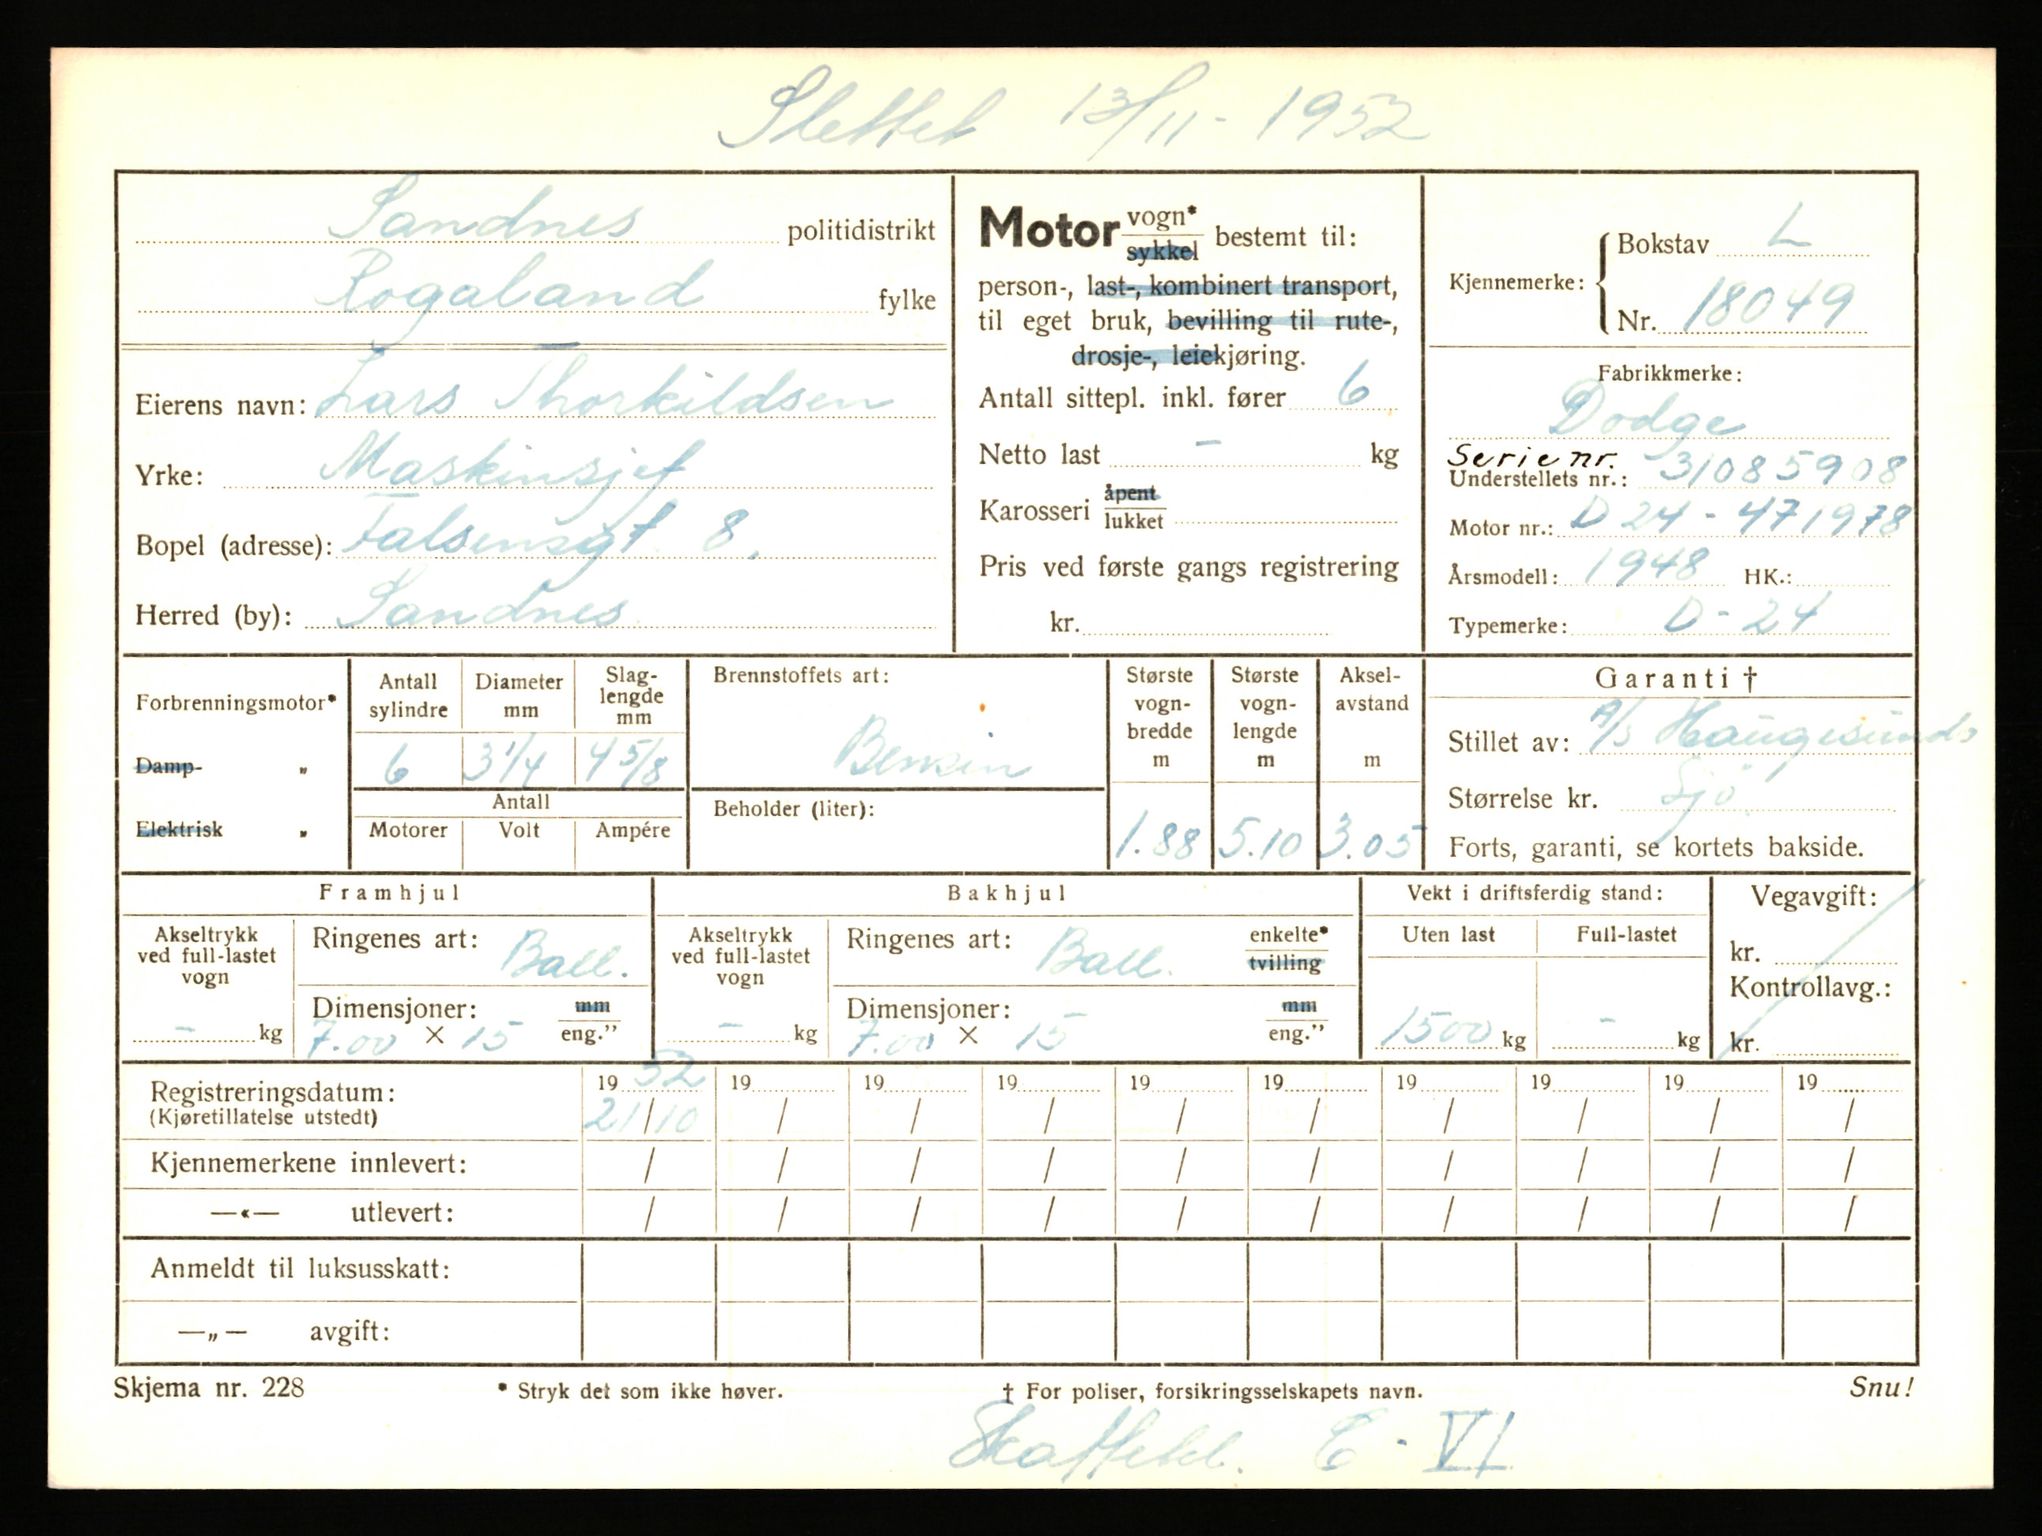 Slettet 13/11 - 1952
Sandnes politidistrikt
Rogaland fylke
Eierens navn: Lars Thorkildsen
Yrke: Maskinsjef
Bopel (adresse): Falsensgt. 8.
Herred (by): Sandnes
Motor vogn* sykkel bestemt til:
person-, last-, kombinert transport,
til eget bruk, bevilling til rute-,
drosje-, leiekjøring.
Antall sittepl. inkl. fører 6
Netto last - kg
Karosseri åpent lukket
Pris ved første gangs registrering
kr.
Kjennemerke: Bokstav L
Nr. 18049
Fabrikkmerke:
Dodge
Serie nr.
Understellets nr.: 31085908
Motor nr.: D 24 - 471978
Årsmodell: 1948 HK.:
Typemerke: D - 24
Forbrenningsmotor*
Damp- "
Elektrisk "
Antall sylindre Diameter mm Slaglengde mm
6 3 1/4 4 5/8
Antall
Motorer Volt Ampére
Brennstoffets art:
Bensin
Beholder (liter):
Største vognbredde m Største vognlengde m Akselavstand m
1.88 5.10 3.05
Garanti †
Stillet av: A/S Haugesunds
Størrelse kr. Sjø
Forts, garanti, se kortets bakside.
Framhjul
Akseltrykk ved full-lastet vogn
- kg
Ringenes art: Ball.
Dimensjoner: mm
7.00 × 15 eng."
Bakhjul
Akseltrykk ved full-lastet vogn
- kg
Ringenes art: Ball. enkelte* tvilling
Dimensjoner: mm
7.00 × 15 eng."
Vekt i driftsferdig stand:
Uten last Full-lastet
1500 kg - kg
Vegavgift:
kr.
Kontrollavg.:
kr.
Registreringsdatum: 19 52 19 19 19 19 19 19 19 19 19
(Kjøretillatelse utstedt) 21/10 / / / / / / / / /
Kjennemerkene innlevert: / / / / / / / / / /
—«— utlevert: / / / / / / / / / /
Anmeldt til luksusskatt:
—„— avgift:
Skjema nr. 228 * Stryk det som ikke høver. † For poliser, forsikringsselskapets navn. Snu!
E - VI